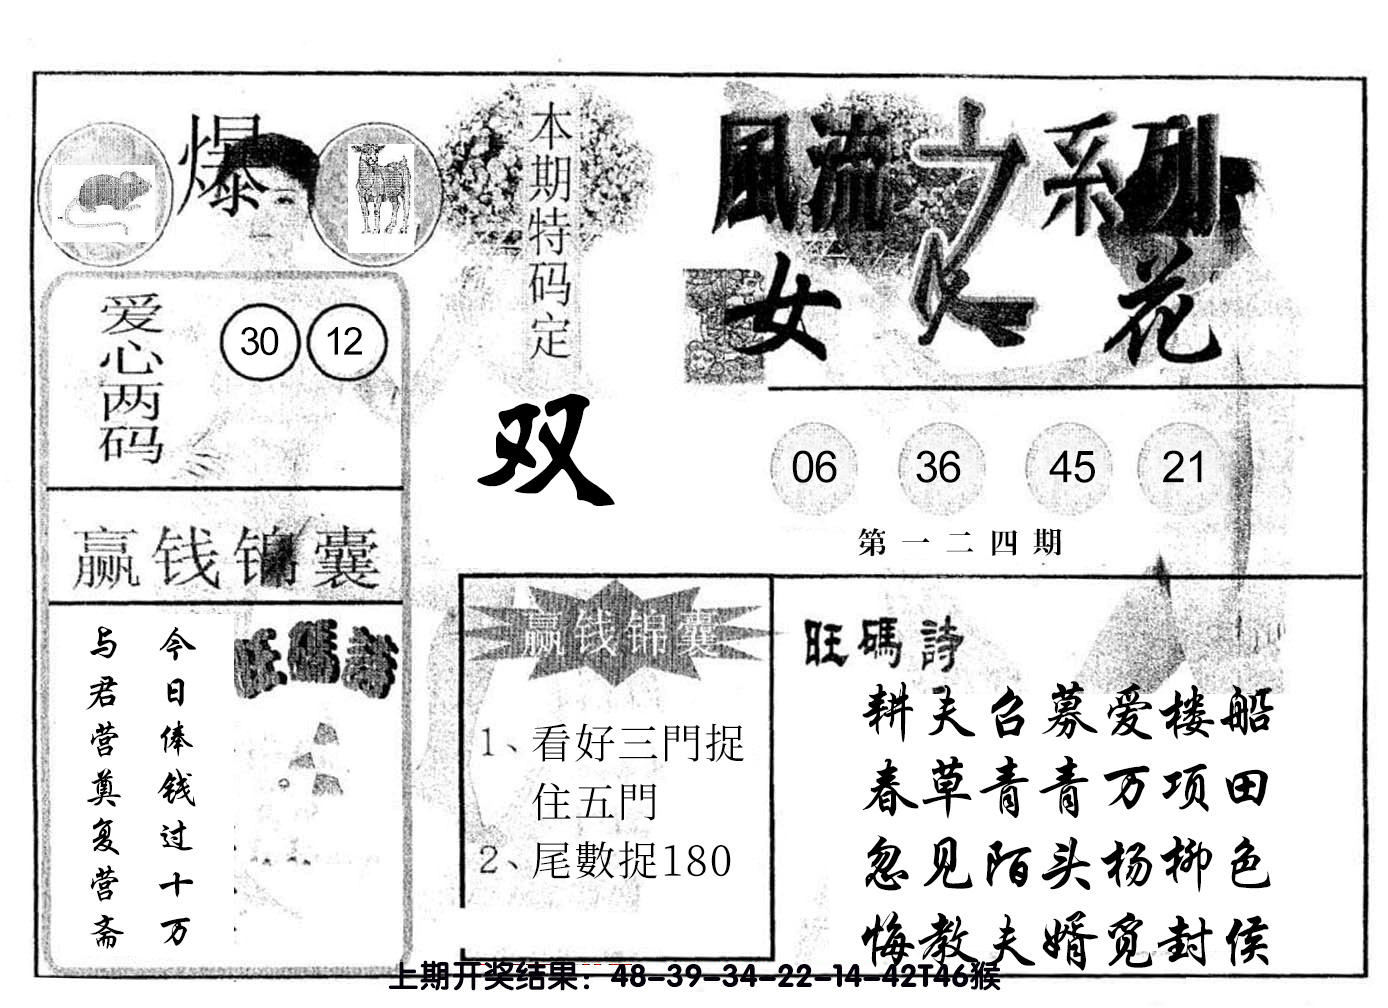 爆
本期特码定
双
風流之系列
女人花
爱心两码
30 12
06 36 45 21
第一二四期
赢钱锦囊
旺碼詩
今日俸钱过十万
与君营奠复营斋
赢钱锦囊
1、看好三門捉
住五門
2、尾數捉180
旺碼詩
耕夫召募爱楼船
春草青青万项田
忽见陌头杨柳色
悔教夫婿觅封侯
上期开奖结果：48-39-34-22-14-42T46猴